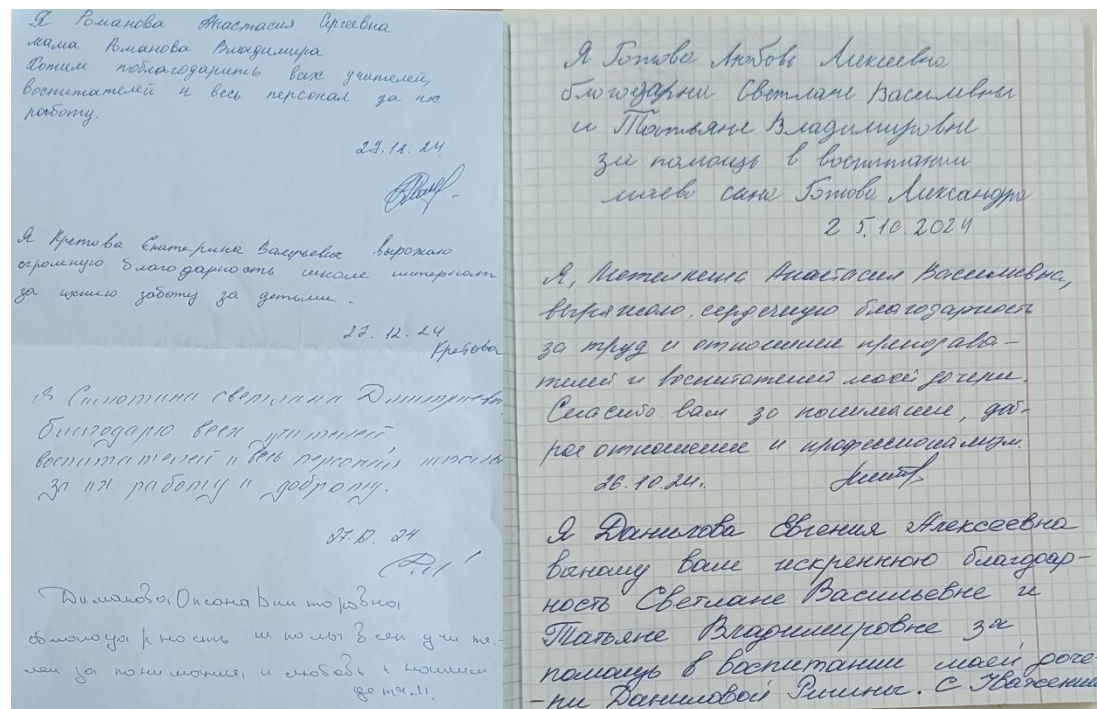 Я Романова Анастасия Сергеевна
мама Романова Владимира
Хотим поблагодарить всех учителей,
воспитателей и весь персонал за их
работу.
27.12.24
Я Кретова Екатерина Валерьевна выражаю
огромную благодарность школе интернат
за ихнию заботу за детьми.
27.12.24
Кретова
Я светлана
благодарю всех учителей,
воспитателей и весь персонал школы
за их работу и доброту.
24
Оксана Викторовна
школы всем учите-
лей за понимания, и любовь к нашим
детям.
Я Готова Любовь Алексеевна
благодарна Светлане Василевны
и Татьяне Владимировне
за помощь в воспитании
маево сына Готова Александра
25.10.2024
Я, Анастасия Василиевна,
выражаю, сердечную благодарность
за труд и отношение препадава-
телей и воспитателей моей дочери.
Спасибо вам за понимание, доб-
рое отношение и профессионализм.
26.10.24.
Я Данилова Евгения Алексеевна
выношу вам искреннюю благодар-
ность Светлане Васильевне и
Татьяне Владимировне за
помощь в воспитании маей доче-
-ри Даниловой . С Уважением